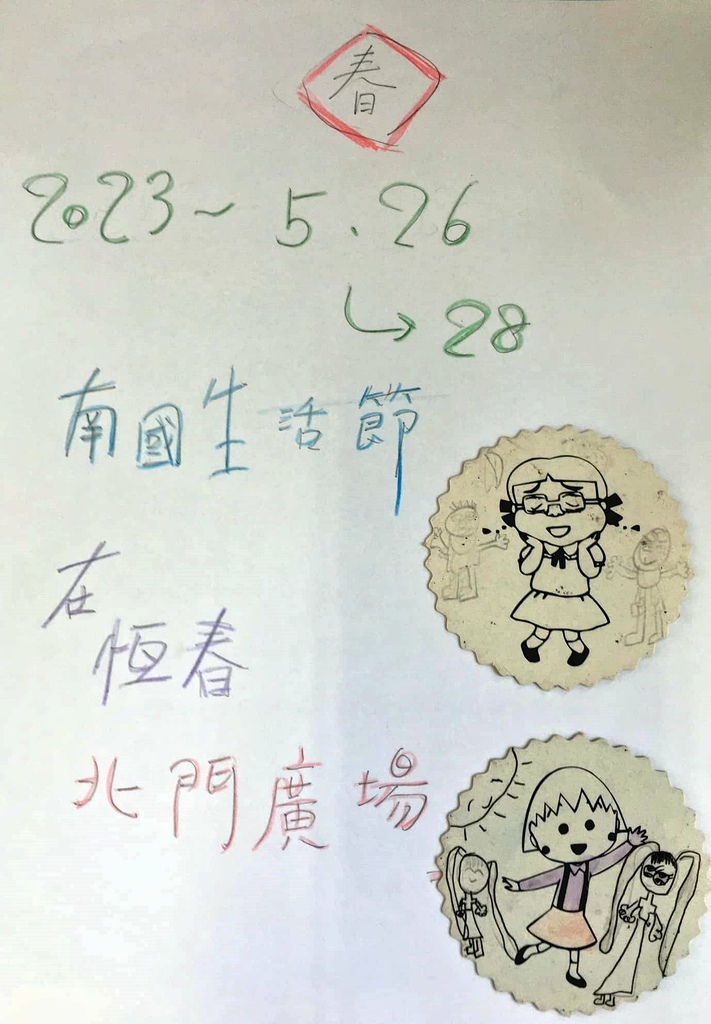 春
2023~ 5.26
↳ 28
南國生活節
在
恆春
北門廣場